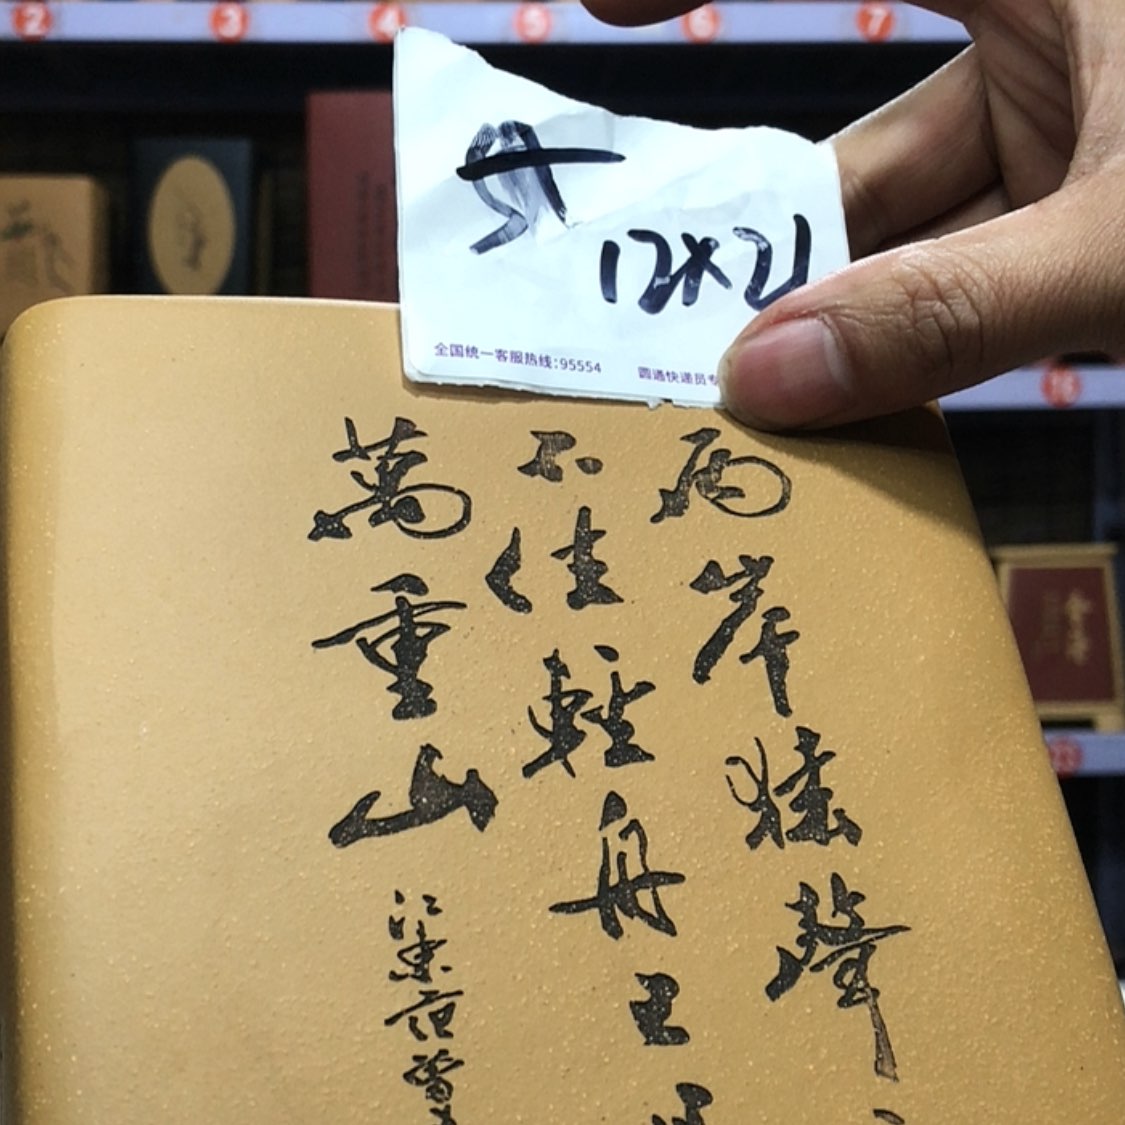 2
3
4
5
6
7
12×21
全国统一客服热线:95554
圆通快递员专
两岸猿聲
不住輕舟已
萬重山
江東
16
23